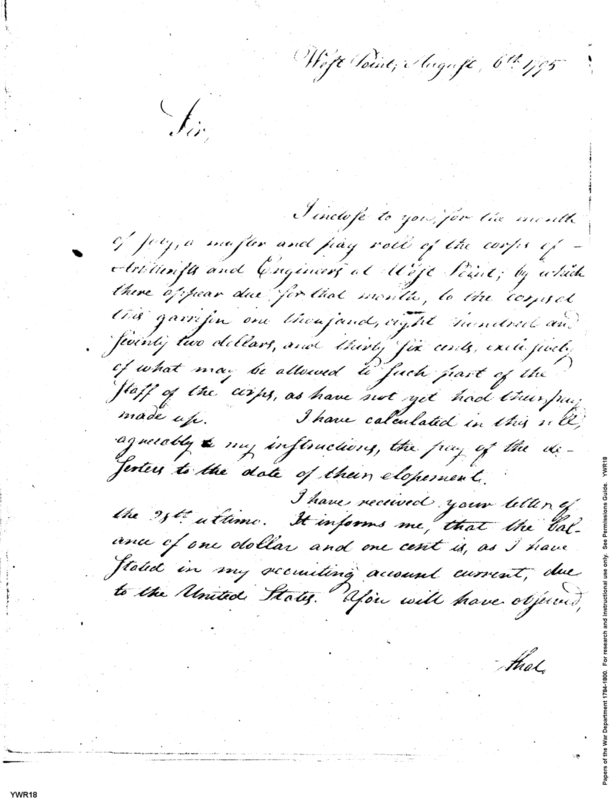 West Point, August, 6th 1795
Sir,
I inclose to you, for the month
of July, a muster and pay roll of the corps of
Artillerists and Engineers at West Point; by which
there appear due for that month, to the corps at
this garrison one thousand, eight hundred and
seventy two dollars, and thirty six cents, exclusively
of what may be allowed to such part of the
staff of the corps, as have not yet had their pay
made up. I have calculated in this roll,
agreeably to my instructions, the pay of the de-
serters to the date of their elopement.
I have received your letter of
the ultimo. It informs me, that the bal-
ance of one dollar and one cent is, as I have
stated in my recruiting account current, due
to the United States. You will have observed,
that
YWR18
Papers of the War Department 1784-1800. For research and instructional use only. See Permissions Guide. YWR18